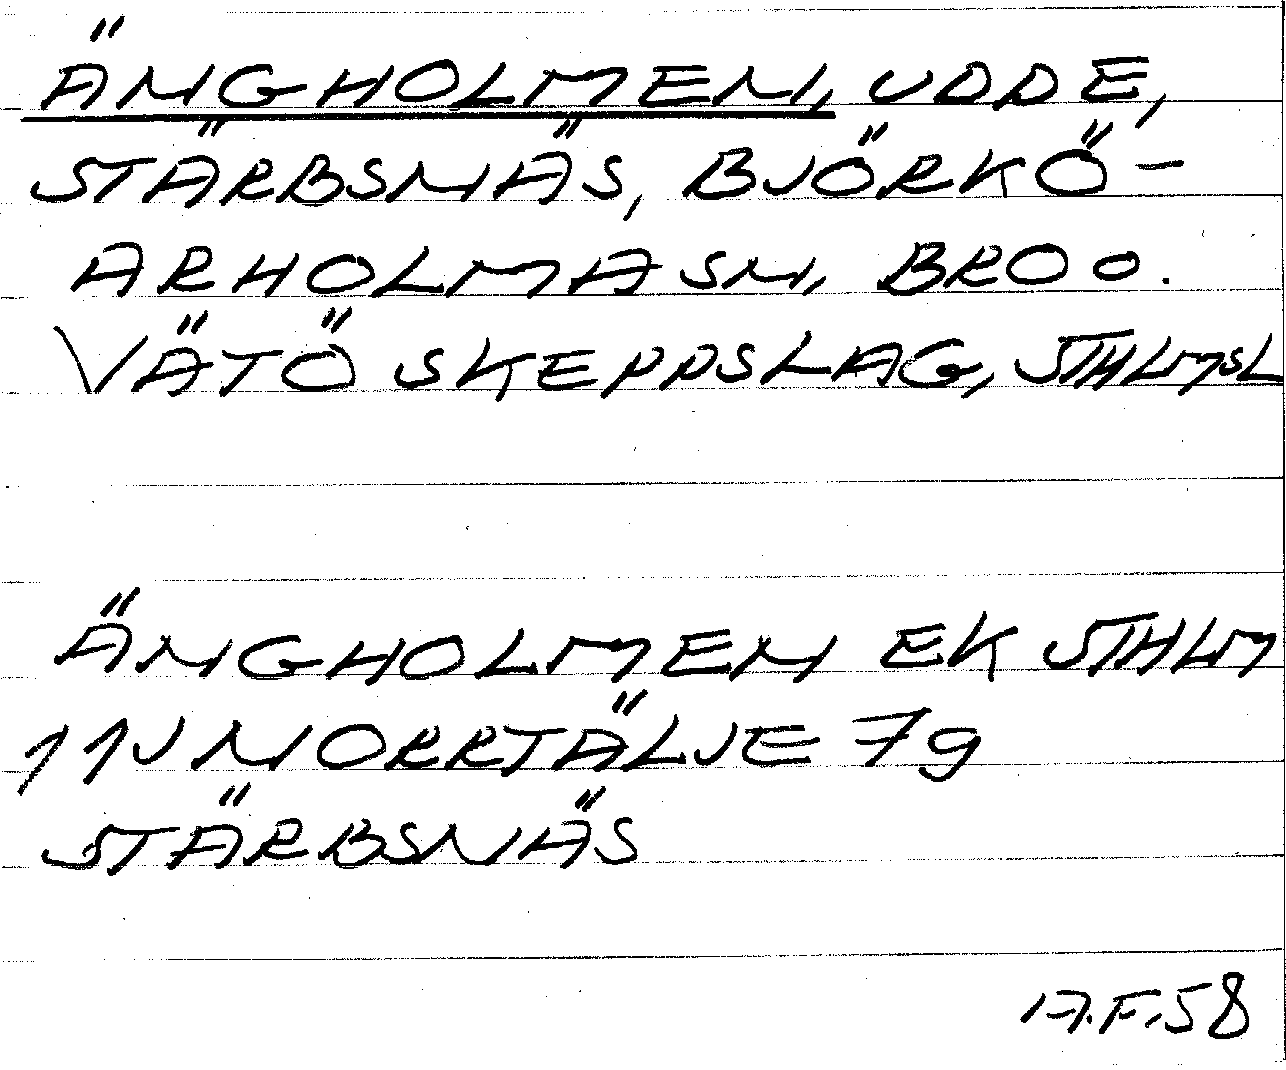 ÄNGHOLMEN, UDDE,
STÄRBSNÄS, BJÖRKÖ-
ARHOLMA SN, BRO O.
VÄTÖ SKEPPSLAG, STHLMSL
ÄNGHOLMEN EK STHLM
11J NORRTÄLJE 7g
STÄRBSNÄS
A.F.58